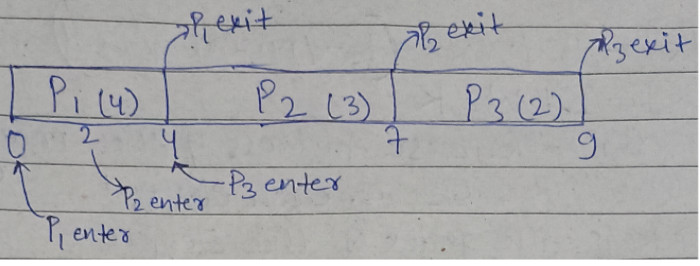 P1 exit P2 exit P3 exit
P1 (4) P2 (3) P3 (2)
0 2 4 7 9
P2 enter P3 enter
P1 enter